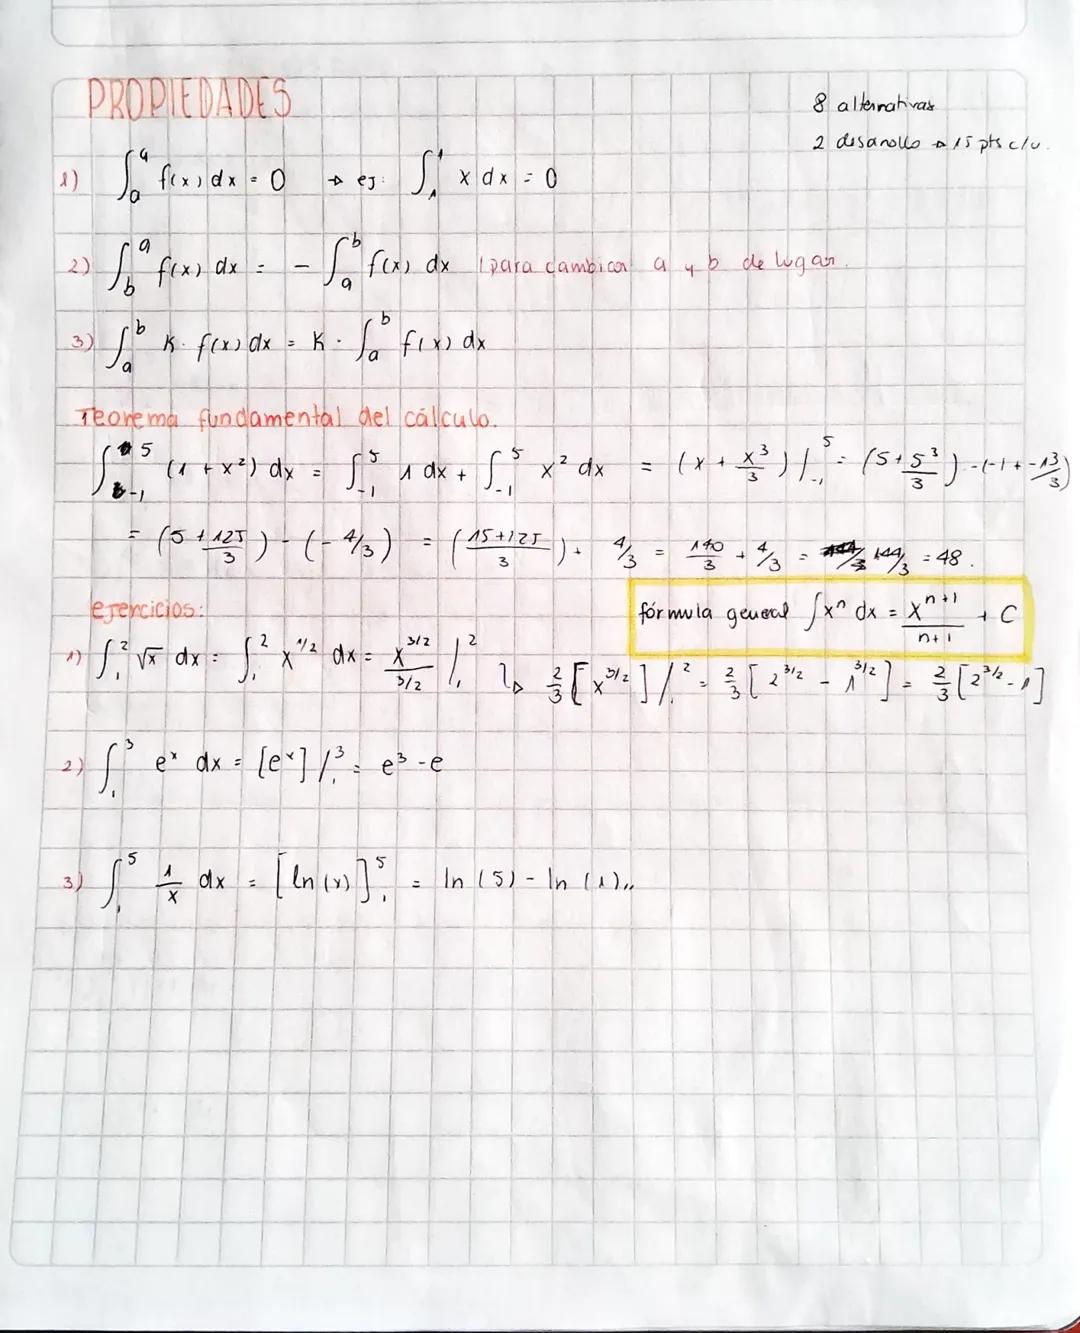 PROPIEDADES
8 alternativas
2 desarrollo → 15 pts c/u.
1) ∫ₐᵃ f(x) dx = 0 → ej: ∫₁¹ x dx = 0
2) ∫_b^a f(x) dx = - ∫_a^b f(x) dx / para cambiar a y b de lugar.
3) ∫_a^b K · f(x) dx = K · ∫_a^b f(x) dx
Teorema fundamental del cálculo.
∫_-1^5 (1 + x²) dx = ∫_-1^5 1 dx + ∫_-1^5 x² dx = (x + x³/3) /_-1^5 = (5 + 5³/3) - (-1 + -1³/3)
= (5 + 125/3) - (-4/3) = (15+125/3) + 4/3 = 140/3 + 4/3 = 144/3 = 48.
ejercicios:
fórmula general ∫xⁿ dx = x^(n+1)/(n+1) + C
1) ∫_1^2 √x dx = ∫_1^2 x^1/2 dx = x^3/2 / 3/2 /_1^2 ↳ 2/3 [x^3/2] /_1^2 = 2/3 [2^3/2 - 1^3/2] = 2/3 [2^3/2 - 1]
2) ∫_1^3 eˣ dx = [eˣ] /_1^3 = e³ - e
3) ∫_1^5 1/x dx = [ln (x)]_1^5 = ln (5) - ln (1)..